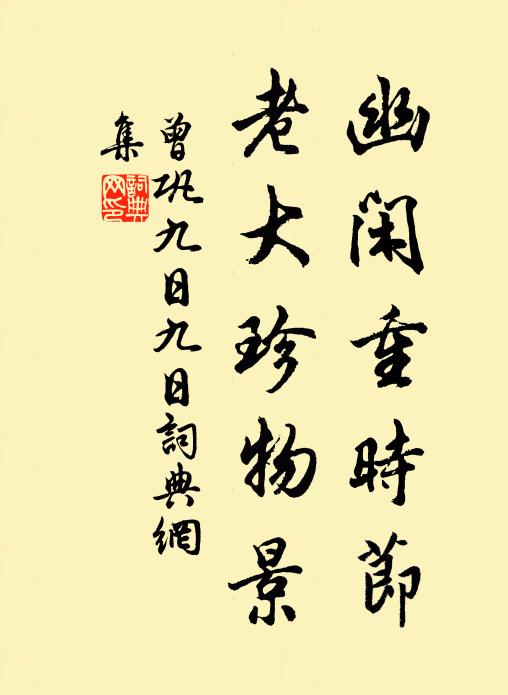 幽閑重時節
老大珍物景
曾鞏九日九日詞典網
集
詞典
網印